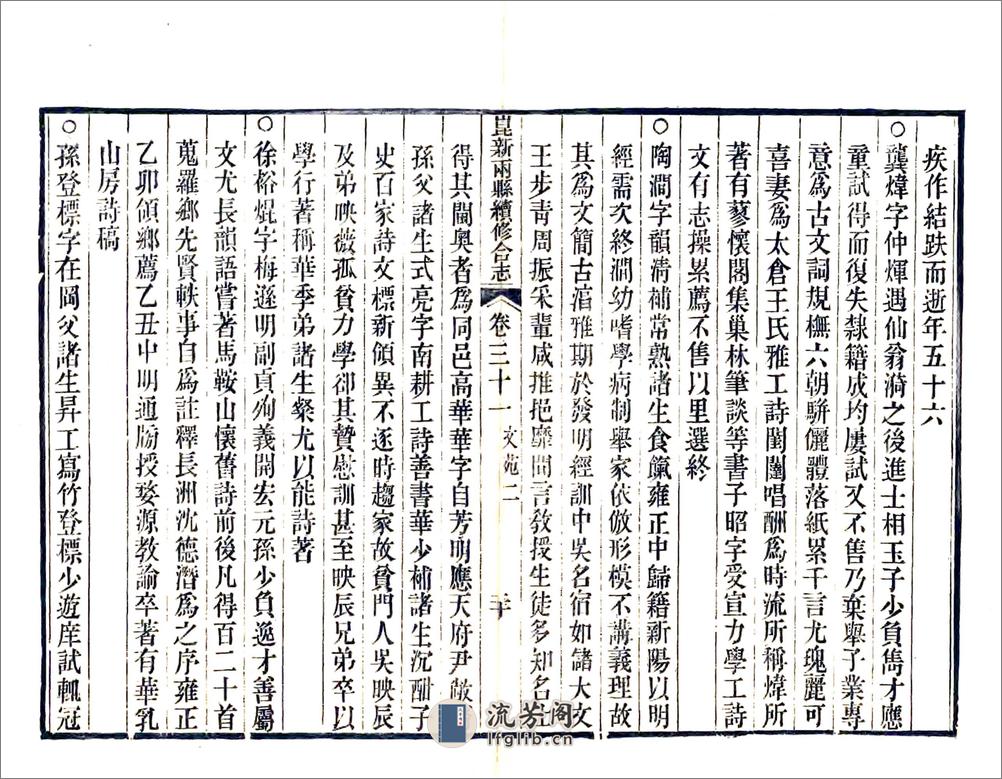 疾作結趺而逝年五十六
○龔煒字仲煇遇仙翁漪之後進士相玉子少負雋才應
童試得而復失隸籍成均屢試又不售乃棄舉子業專
意爲古文詞規橅六朝駢儷體落紙累千言尤瑰麗可
喜妻爲太倉王氏雅工詩閨闥唱酬爲時流所稱煒所
著有蓼懷閣集巢林筆談等書子昭字受宣力學工詩
文有志操累薦不售以里選終
○陶澗字韻淸補常熟諸生食餼雍正中歸籍新陽以明
經需次終澗幼嗜學病制舉家依倣形模不講義理故
其爲文簡古淯雅期於發明經訓中吳名宿如儲大文
王步靑周振采輩咸推挹靡間言敎授生徒多知名士
崑新兩縣續修合志 卷三十一 文苑二 二十
得其閫奧者爲同邑高華華字自芳明應天府尹敵
孫父諸生式亮字南耕工詩善書華少補諸生沉酣子
史百家詩文標新領異不逐時趨家故貧門人吳映辰
及弟映薇孤貧力學卻其贄慰訓甚至映辰兄弟卒以
學行著稱華季弟諸生粲尤以能詩著
○徐榕焜字梅遜明副貢殉義開宏元孫少負逸才善屬
文尤長韻語嘗著馬鞍山懷舊詩前後凡得百二十首
蒐羅鄉先賢軼事自爲註釋長洲沈德潛爲之序雍正
乙卯領鄉薦乙丑中明通牓授婺源敎諭卒著有華乳
山房詩稿
○孫登標字在岡父諸生昇工寫竹登標少遊庠試輒冠
流芳阁
lfglib.cn